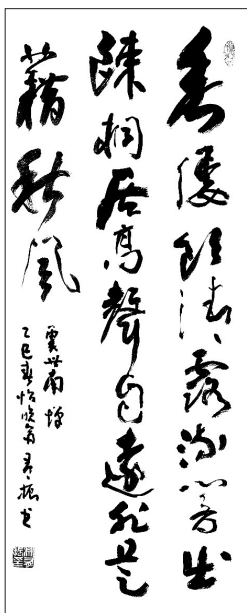 垂緌飲清露流響出
疎桐居高聲自遠非是
藉秋風
虞世南 蟬
乙巳春